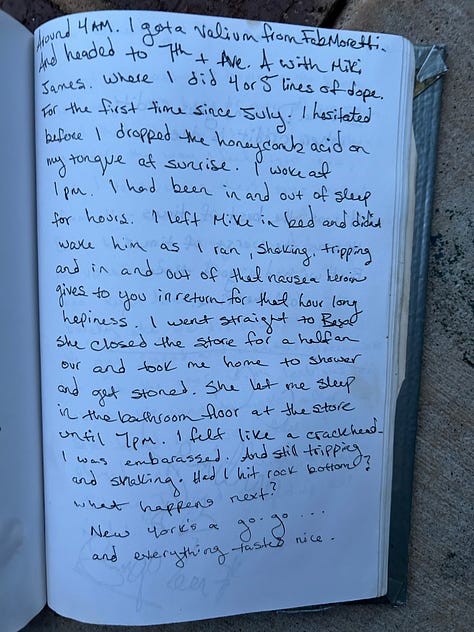 around 4AM. I got a Valium from Fab Moretti.
And headed to 7th + Ave. A with Miki
James. where I did 4 or 5 lines of dope.
For the first time since July. I hesitated
before I dropped the honeycomb acid on
my tongue at sunrise. I woke at
1pm. I had been in and out of sleep
for hours. I left Mike in bed and didnt
wake him as I ran, shaking, tripping
and in and out of that nausea heroin
gives to you in return for that hour long
hapiness. I went straight to
she closed the store for a half an
our and took me home to shower
and get stoned. She let me sleep
in the bathroom floor at the store
until 7pm. I felt like a crackhead-
I was embarassed. And still tripping
and shaking. Had I hit rock bottom?
what happens next?
New York's a go-go ...
and everything tastes nice.